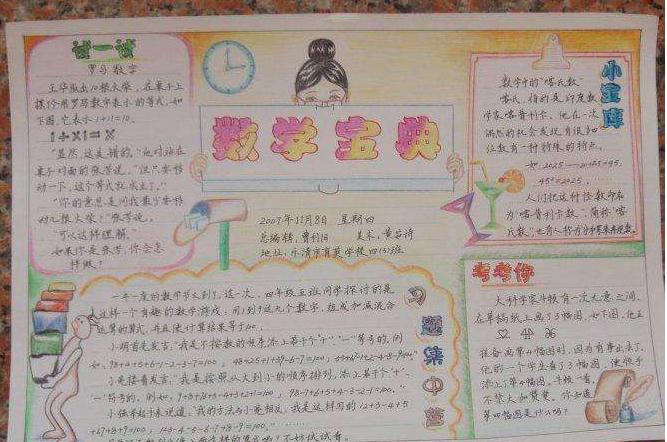 试一试
罗马数字
王华取出10根火柴，在桌子上
摆1个用罗马数字表示的等式，如
下图，它表示1+11=10。
I÷XI=X
"显然，这是错的。"他对站在
桌子对面的张芳说，"但只要移
动一下，这个等式就成立了。"
"你的意思是问我最少要移
动几根火柴？"张芳说。
"可以这样理解。"
如果你是张芳，你会怎
样做？
数学宝典
2007年11月8日 星期四
总编辑：曹利阳 美术：黄茹诗
地址：乐清市育英学校四(5)班
小宝库
数学中的"喀氏数"
喀氏，指的是印度数
学家喀普利卡。他在一次
偶然的机会发现有很多四
位数有一种特殊的特点。
如2025——20+25=45，
45²=2025。
人们把这种怪数命名
为"喀普利卡数"，简称"喀
氏数"，也有人称为
习题集中营
一年一度的数学节又到了，这一次，四年级五班同学探讨的是
这样一个有趣的数学游戏，用1到9这九个数字，组成加减混合
运算的算式，并且使计算结果等于100。
小明首先发言："我是不按数的顺序添上若干个"+""-"等号的，例
如，98+4+5+6-1-2-3-7=100，
小亮接着发言："我是按照从大到小的顺序排列，添上若干个"+"、
"-"符号的，例如，9+8+76+5-4+3+2+1=100，98-7+6+5+4-3-2-1=100。"
小强举起手来说道："我的方法与小亮相反，我是这样写的12+3-4+5
+67+8+9=100，123-4-5-6-7+8-9=100。"
考考你
大科学家牛顿有一次无意之间，
在草稿纸上画了3幅图，如下图，他正
准备画第四幅图时，因为有事出去了，
他的一个学生看了3幅图，便顺手
添上了第4幅图，牛顿一看，
不禁大加赞赏，你知道
第四幅图是什么吗？